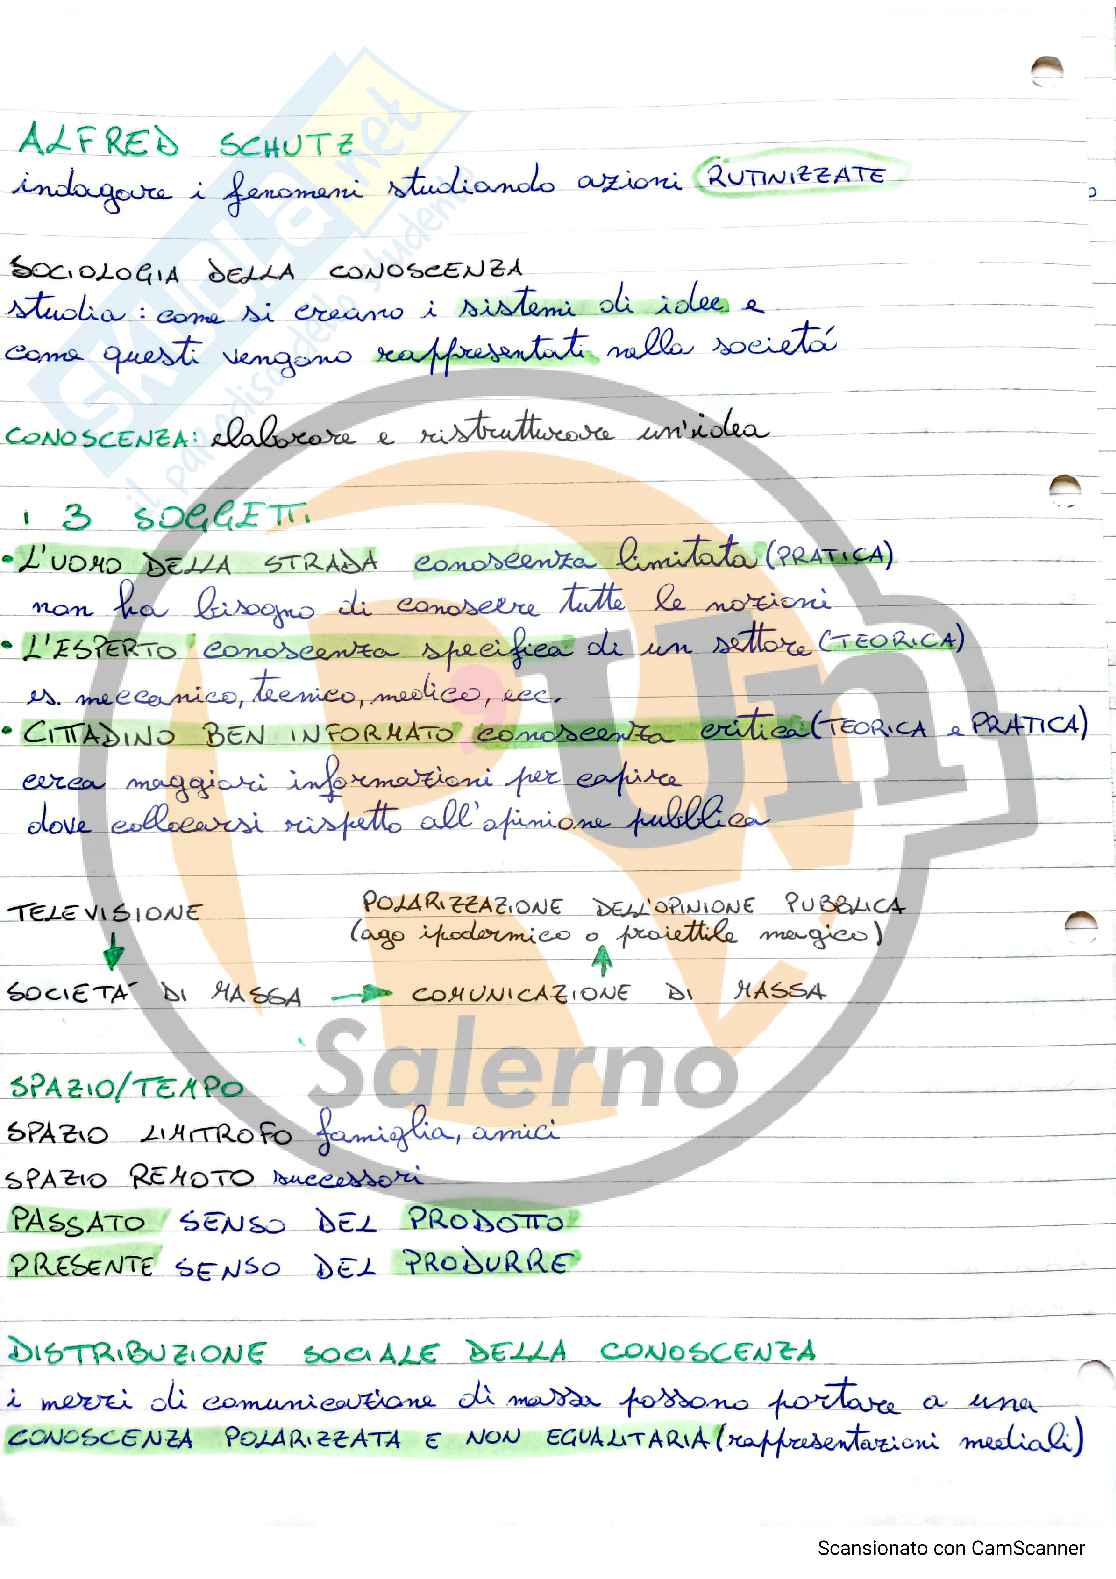 ALFRED SCHUTZ
indagare i fenomeni studiando azioni RUTINIZZATE
SOCIOLOGIA DELLA CONOSCENZA
studia: come si creano i sistemi di idee e
come questi vengono rappresentati nella societá
CONOSCENZA: elaborare e ristrutturare un'idea
i 3 SOGGETTI
• L'UOMO DELLA STRADA conoscenza limitata (PRATICA)
non ha bisogno di conoscere tutte le nozioni
• L'ESPERTO conoscenza specifica di un settore (TEORICA)
es. meccanico, tecnico, medico, ecc.
• CITTADINO BEN INFORMATO conoscenza critica (TEORICA e PRATICA)
cerca maggiori informazioni per capire
dove collocarsi rispetto all'opinione pubblica
TELEVISIONE
POLARIZZAZIONE DELL'OPINIONE PUBBLICA
(ago ipodermico o proiettile magico)
SOCIETA' DI MASSA → COMUNICAZIONE DI MASSA
SPAZIO/TEMPO
SPAZIO LIMITROFO famiglia, amici
SPAZIO REMOTO successori
PASSATO SENSO DEL PRODOTTO
PRESENTE SENSO DEL PRODURRE
DISTRIBUZIONE SOCIALE DELLA CONOSCENZA
i mezzi di comunicazione di massa possono portare a una
CONOSCENZA POLARIZZATA E NON EGUALITARIA (rappresentazioni mediali)
Skuola.net
il paradiso dello studente
Run
Salerno
Scansionato con CamScanner